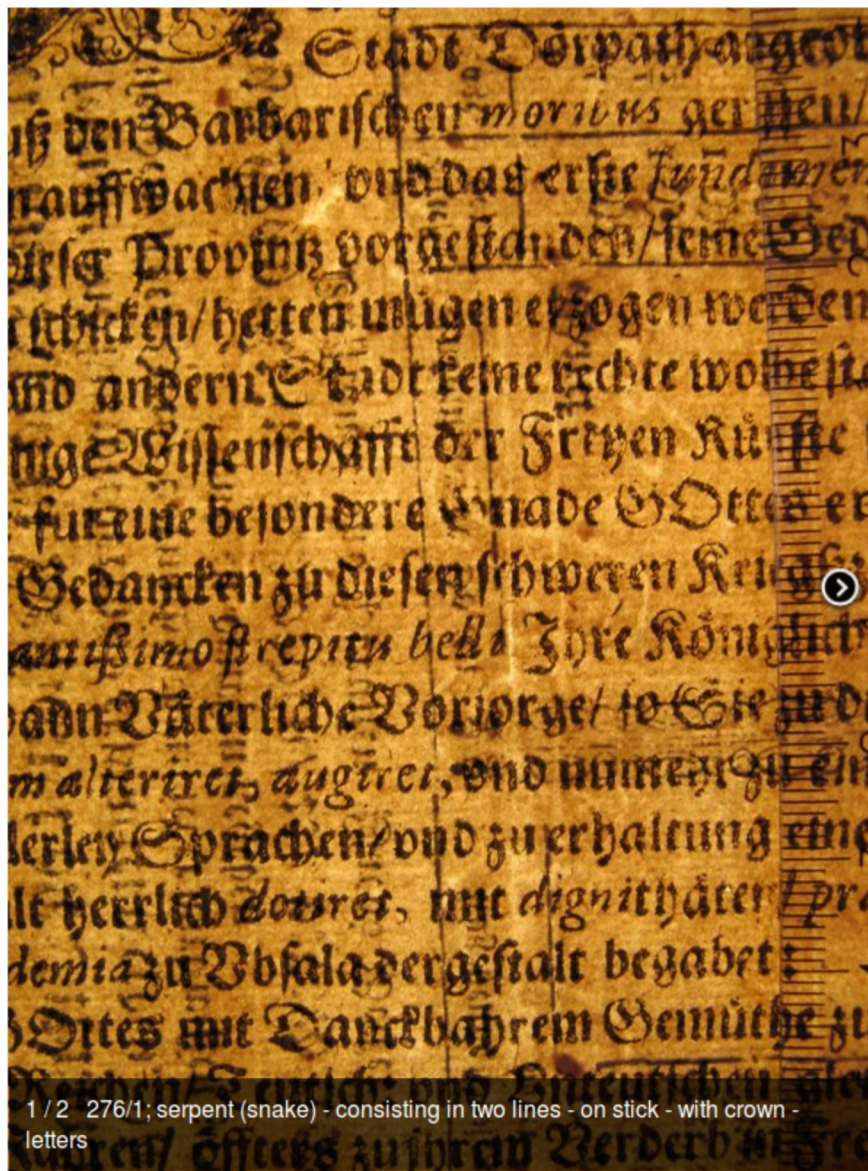 Stadt Dörpath angeo
uß den Barbarischen moribus gerissen/
nauffwachsen, vnd das erste Fundamen
dieser Provintz vorgestanden/ seine Ged
rschicken/ hetten mügen erzogen werden
und andern Stadt keine rechte wolbeste
nige Wissenschafft der Freyen Künste
für eine besondere Gnade GOttes er
Gedancken zu diesen schweren Kriegßz
antißimo strepitu belli Ihre Königlich
dann Väterliche Vorsorge/ so Sie zu d
m alteriret, augiret, vnd nunmehr zu en
lerley Sprachen/ vnd zu erhaltung eing
lt herrlich dotiret, mit dignithäten/ pr
demia zu Vbsala dergestalt begabet:
GOttes mit Danckbahrem Gemüthe zu
Reichen/ Teutschen vnd
öffters zu ihrem Verderb
1 / 2 276/1; serpent (snake) - consisting in two lines - on stick - with crown -
letters